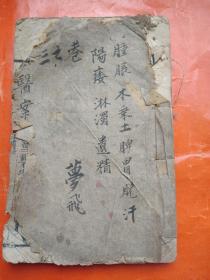 腫脹 木乘土 脾胃 風 汗
陽痿 淋濁 遺精
夢飛
卷之三
醫案